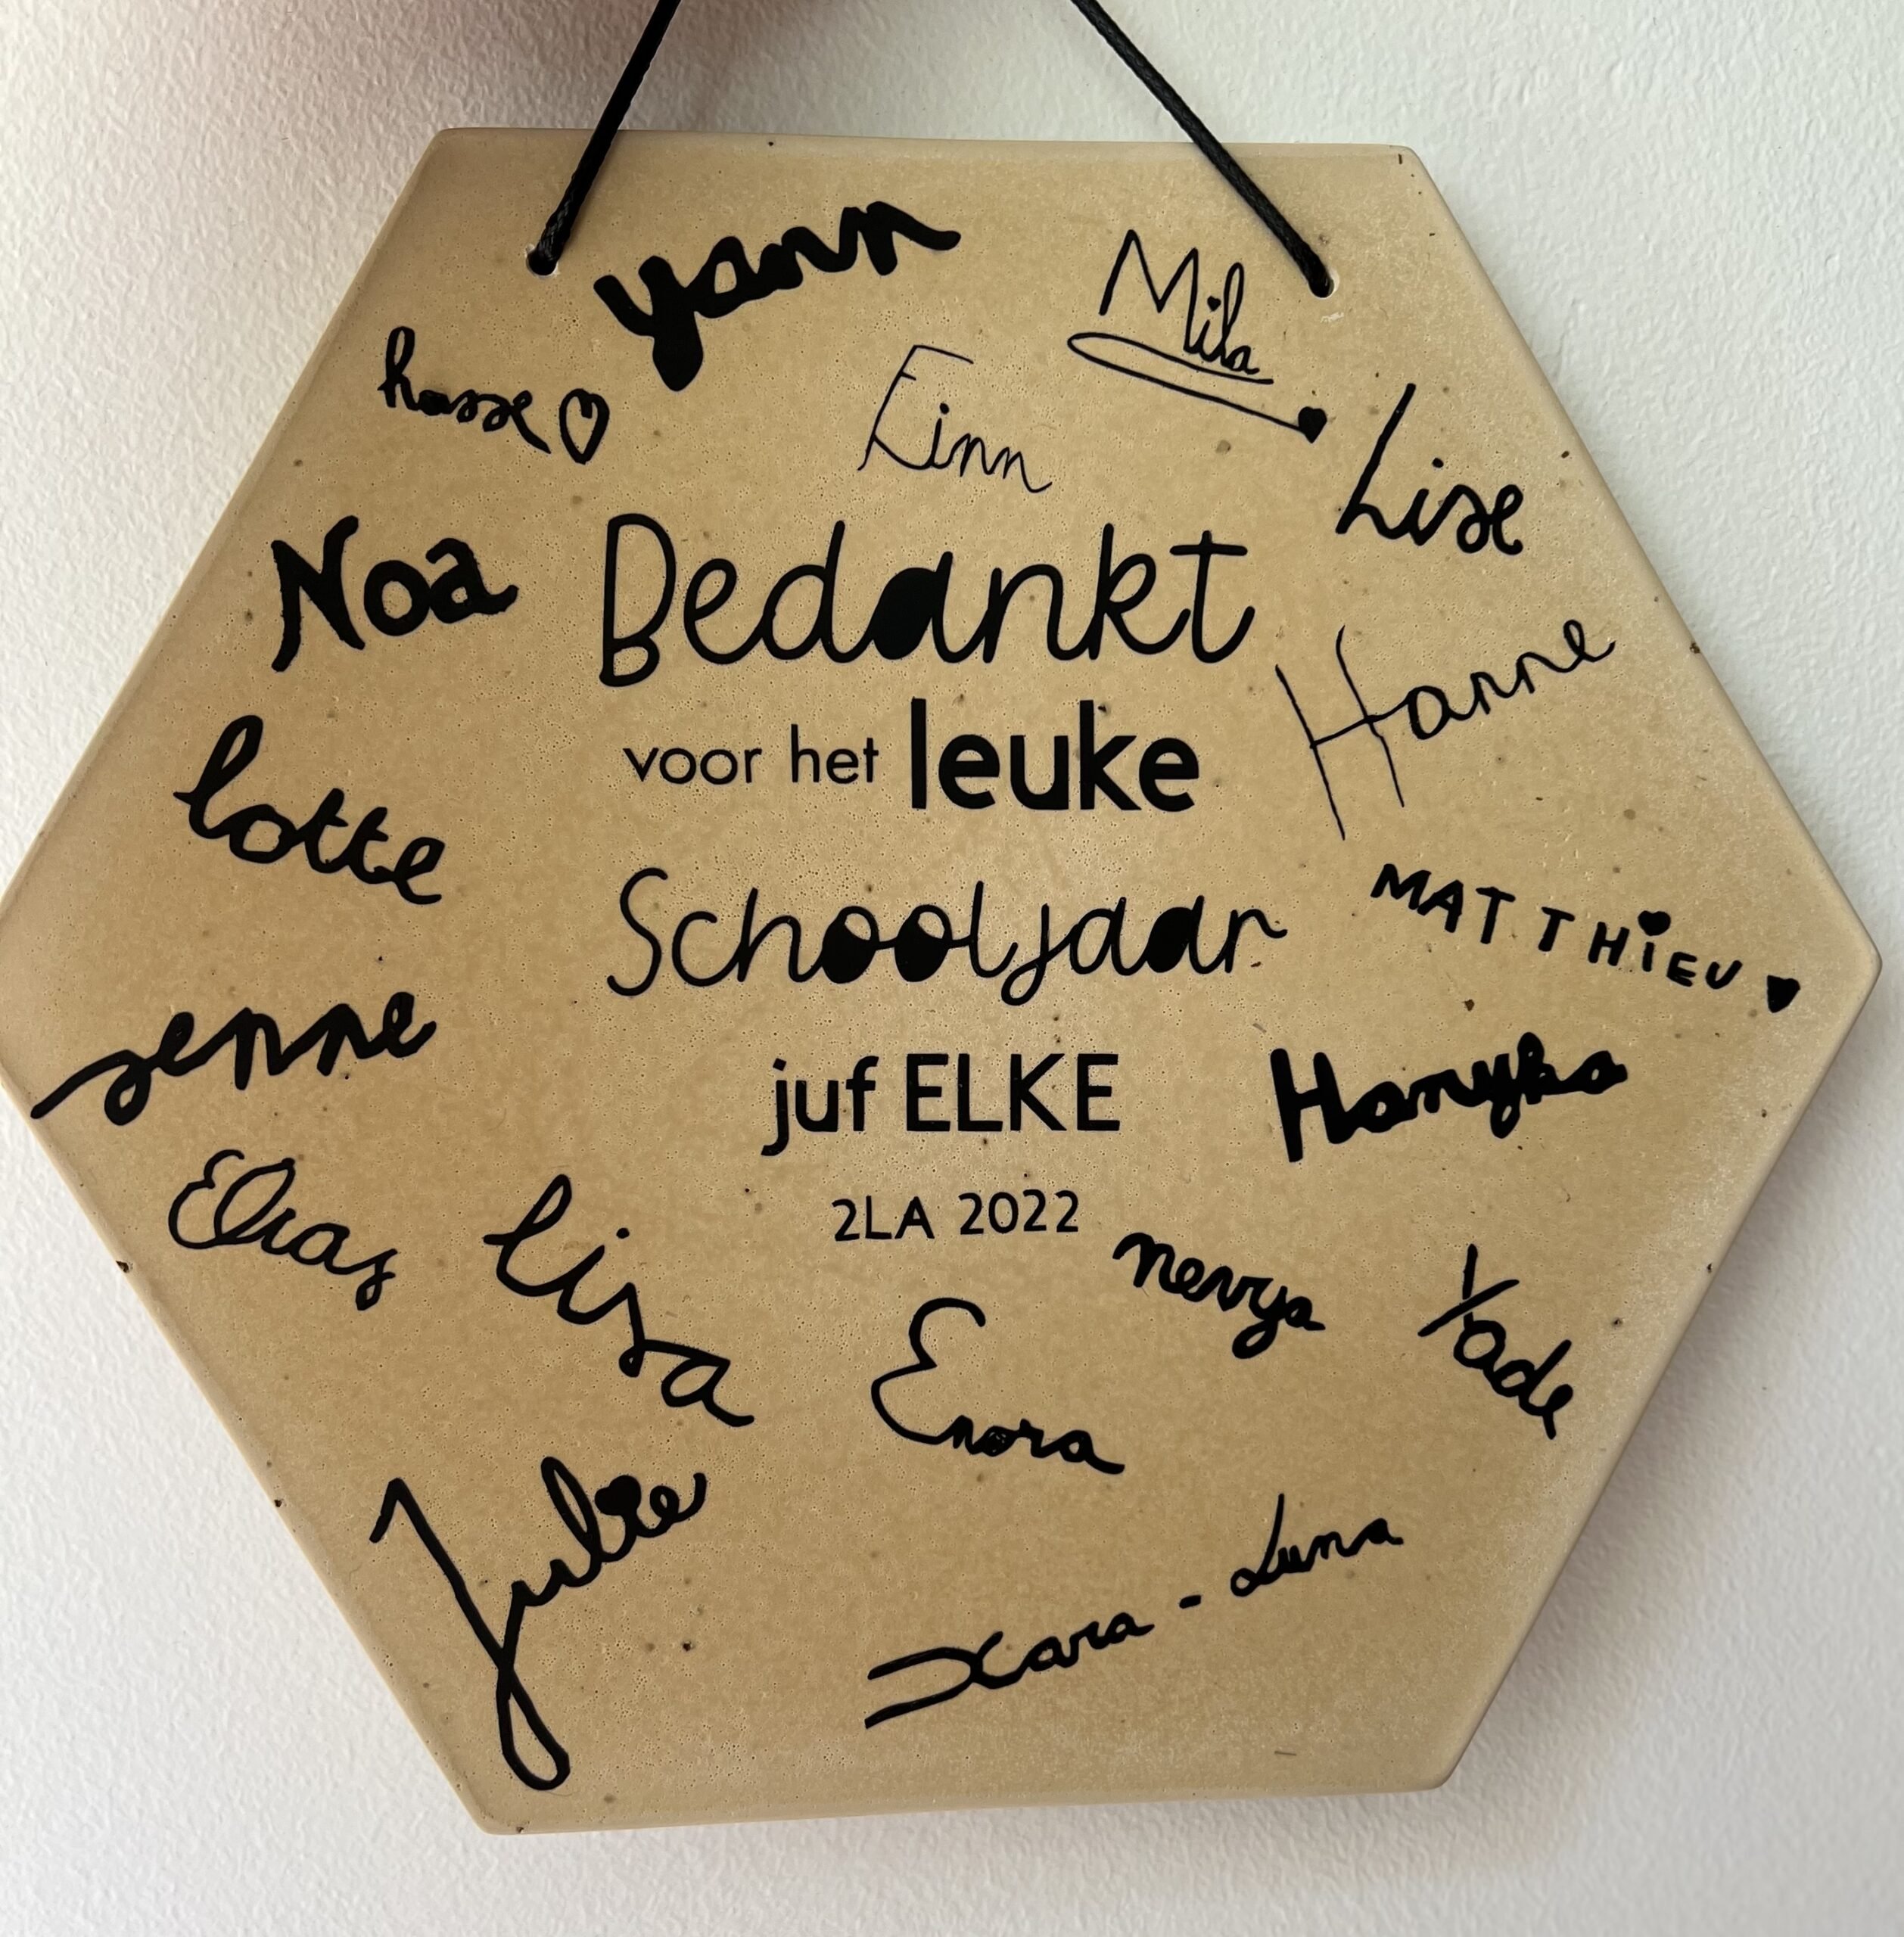 yann
Mila
hasse
Finn
Lise
Noa
Bedankt
Hanne
voor het leuke
lotte
MATTHiEU
Schooljaar
senne
juf ELKE
Elias
lisa
2LA 2022
nevya
Yade
Enora
Julie
Xara - Luna